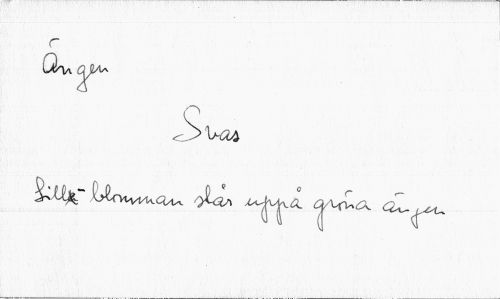 Ängen
Svas
Lilla blomman står uppå gröna ängen